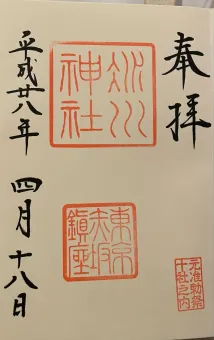 奉拝
氷川神社
東京赤坂鎮座
元准勅祭十社之内
平成廿八年 四月十八日